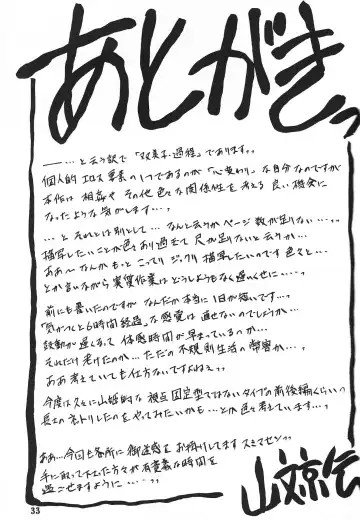 あとがきっ
――…と云う訳で「双美子・過程」であります。
個人的エロス要素の1つであるのが「心変わり」な自分なのですが
本作は相姦やその他色々な関係性を考える良い機会に
なったような気がします…。
…とそれとは別として…なんと云うかページ数が足りない…。
描写したいことが色々あり過ぎて尺が足りないと云うか…
ああ〜なんかもっとこってりジックリ描写したいのですと色々と…
とか言いながら実質作業はどうしようもなく遅いくせに…。
前にも書いたのですがなんだか本当に1日が短いです…。
「気がつくと6時間経過」な感覚は直せないのでしょうか…
鼓動が遅くなって体感時間が早まっているのか…
それだけ老けたのか…ただの不規則生活の弊害か…。
ああ考えていても仕方ないですよねぇ。
今度は久々に山姫的な視点固定型ではないタイプの前後編くらいの
長さのネトリしたのをやってみたいかも…とか色々考えています…。
ああ…今回も各所に御迷惑をお掛けしてます スミマセン。
手に取って下さった方々が有意義な時間を
過ごせますように…。
山文京伝
33